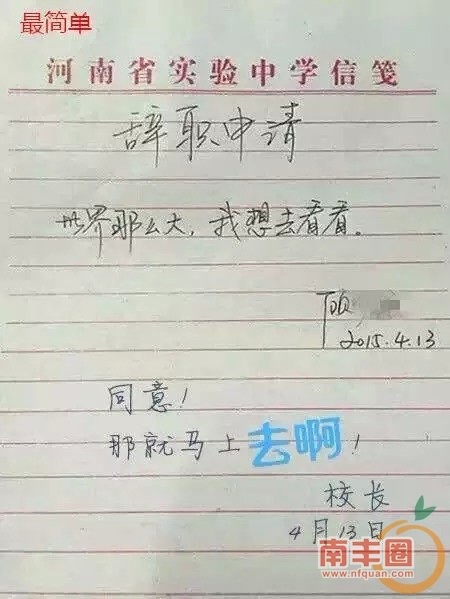 最简单
河南省实验中学信笺
辞职申请
世界那么大，我想去看看。
顾
2015.4.13
同意！
那就马上去啊！
校长
4月13日
南丰圈
www.nfquan.com